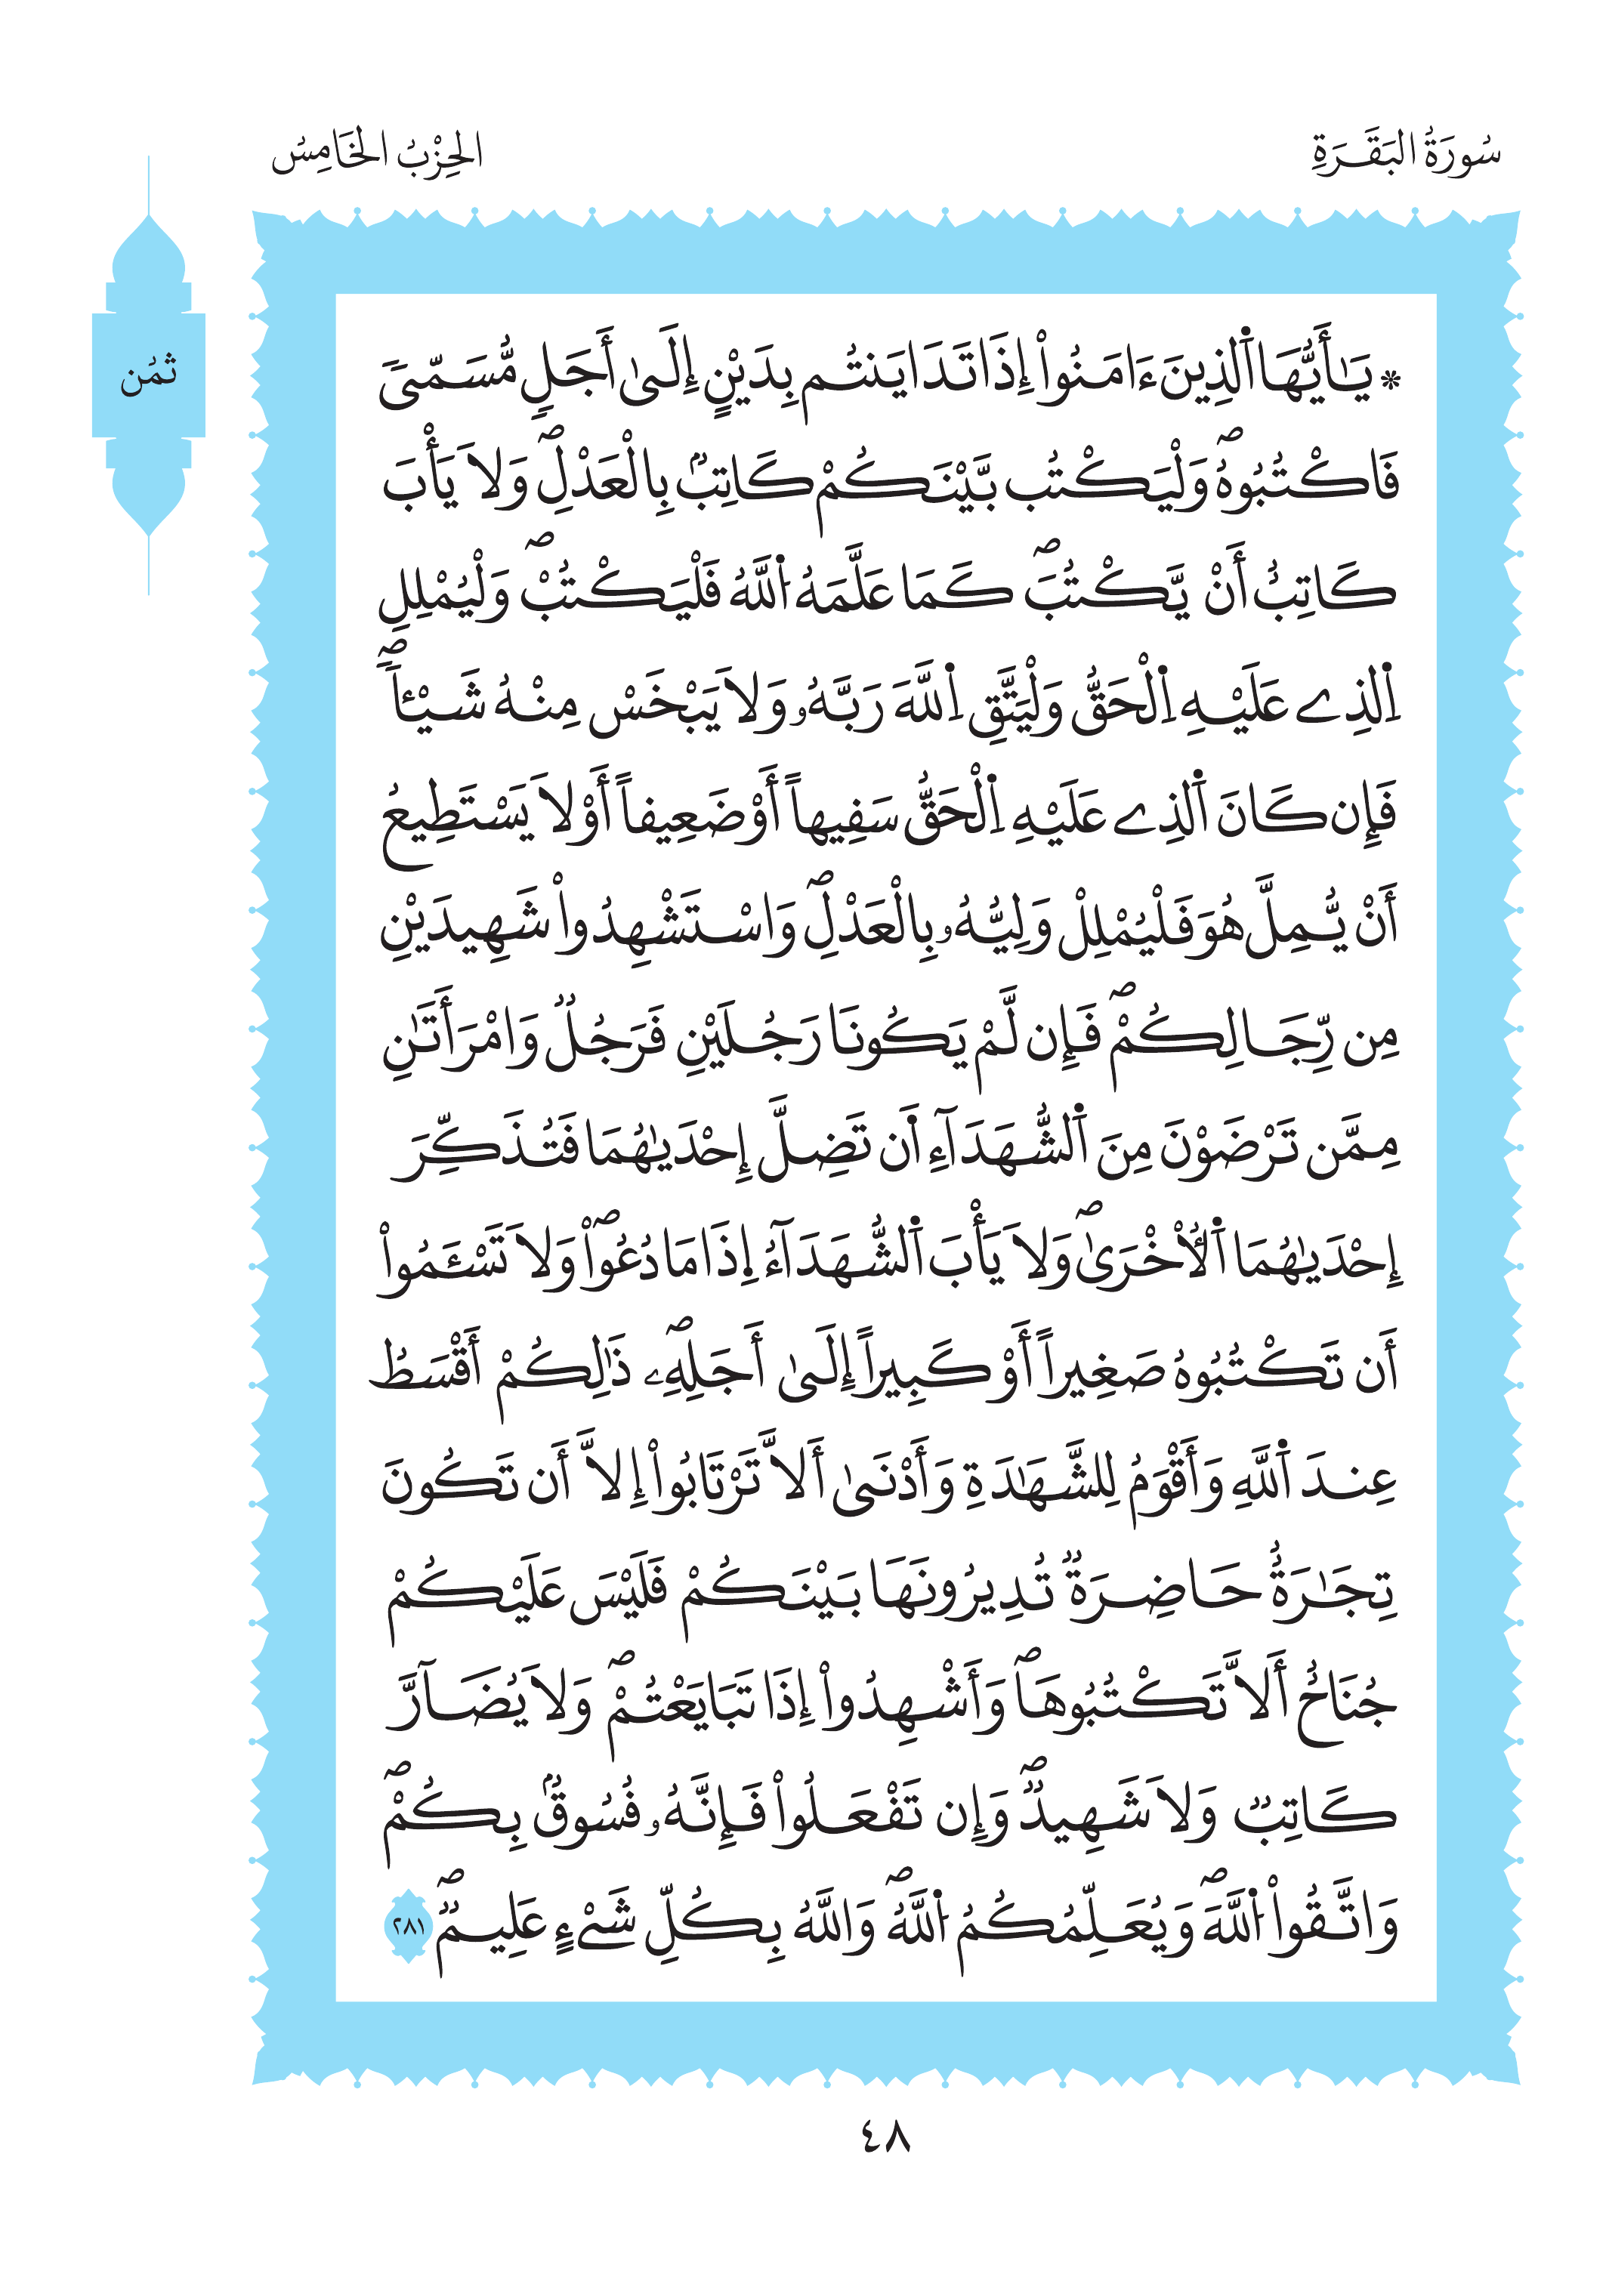 سُورَةُ البَقَرَةِ
الحِزْبُ الخَامِسُ
ثمُن
* يَـٰٓأَيُّهَا اَ۬لذِينَ ءَامَنُواْ إِذَا تَدَايَنتُم بِدَيْنٍ إِلَىٰٓ أَجَلٖ مُّسَمّىٗ
فَاكْتُبُوهُۖ وَلْيَكْتُب بَّيْنَكُمْ كَاتِبُۢ بِالْعَدْلِۖ وَلَا يَأْبَ
كَاتِبٌ أَنْ يَّكْتُبَۖ كَمَا عَلَّمَهُ اُ۬للَّهُ فَلْيَكْتُبْۖ وَلْيُمْلِلِ
اِ۬لذِے عَلَيْهِ اِ۬لْحَقُّ وَلْيَتَّقِ اِ۬للَّهَ رَبَّهُۥ وَلَا يَبْخَسْ مِنْهُ شَيْـٔاًۖ
فَإِن كَانَ اَ۬لذِے عَلَيْهِ اِ۬لْحَقُّ سَفِيهاً أَوْ ضَعِيفاً أَوْ لَا يَسْتَطِيعُ
أَنْ يُّمِلَّ هُوَ فَلْيُمْلِلْ وَلِيُّهُۥ بِالْعَدْلِۖ وَاسْتَشْهِدُواْ شَهِيدَيْنِ
مِن رِّجَالِكُمْۖ فَإِن لَّمْ يَكُونَا رَجُلَيْنِ فَرَجُلٞ وَامْرَأَتَـٰنِ
مِمَّن تَرْضَوْنَ مِنَ اَ۬لشُّهَدَآءِ اَ۬ن تَضِلَّ إِحْدَيٰهُمَا فَتُذَكِّرَ
إِحْدَيٰهُمَا اَ۬لُاخْرَىٰۖ وَلَا يَأْبَ اَ۬لشُّهَدَآءُ اِ۬ذَا مَا دُعُواْۖ وَلَا تَسْـَٔمُواْ
أَن تَكْتُبُوهُ صَغِيراً أَوْ كَبِيراً إِلَىٰٓ أَجَلِهِۦۖ ذَٰلِكُمْ أَقْسَطُ
عِندَ اَ۬للَّهِ وَأَقْوَمُ لِلشَّهَـٰدَةِ وَأَدْنَىٰٓ أَلَّا تَرْتَابُواْ إِلَّا أَن تَكُونَ
تِجَـٰرَةٌ حَاضِرَةٞ تُدِيرُونَهَا بَيْنَكُمْ فَلَيْسَ عَلَيْكُمْ
جُنَاحٌ أَلَّا تَكْتُبُوهَاۖ وَأَشْهِدُواْ إِذَا تَبَايَعْتُمْۖ وَلَا يُضَآرَّ
كَاتِبٞ وَلَا شَهِيدٞۖ وَإِن تَفْعَلُواْ فَإِنَّهُۥ فُسُوقُۢ بِكُمْۖ
وَاتَّقُواْ اُ۬للَّهَۖ وَيُعَلِّمُكُمُ اُ۬للَّهُۖ وَاللَّهُ بِكُلِّ شَےْءٍ عَلِيمٞۖ ٢٨١
٤٨